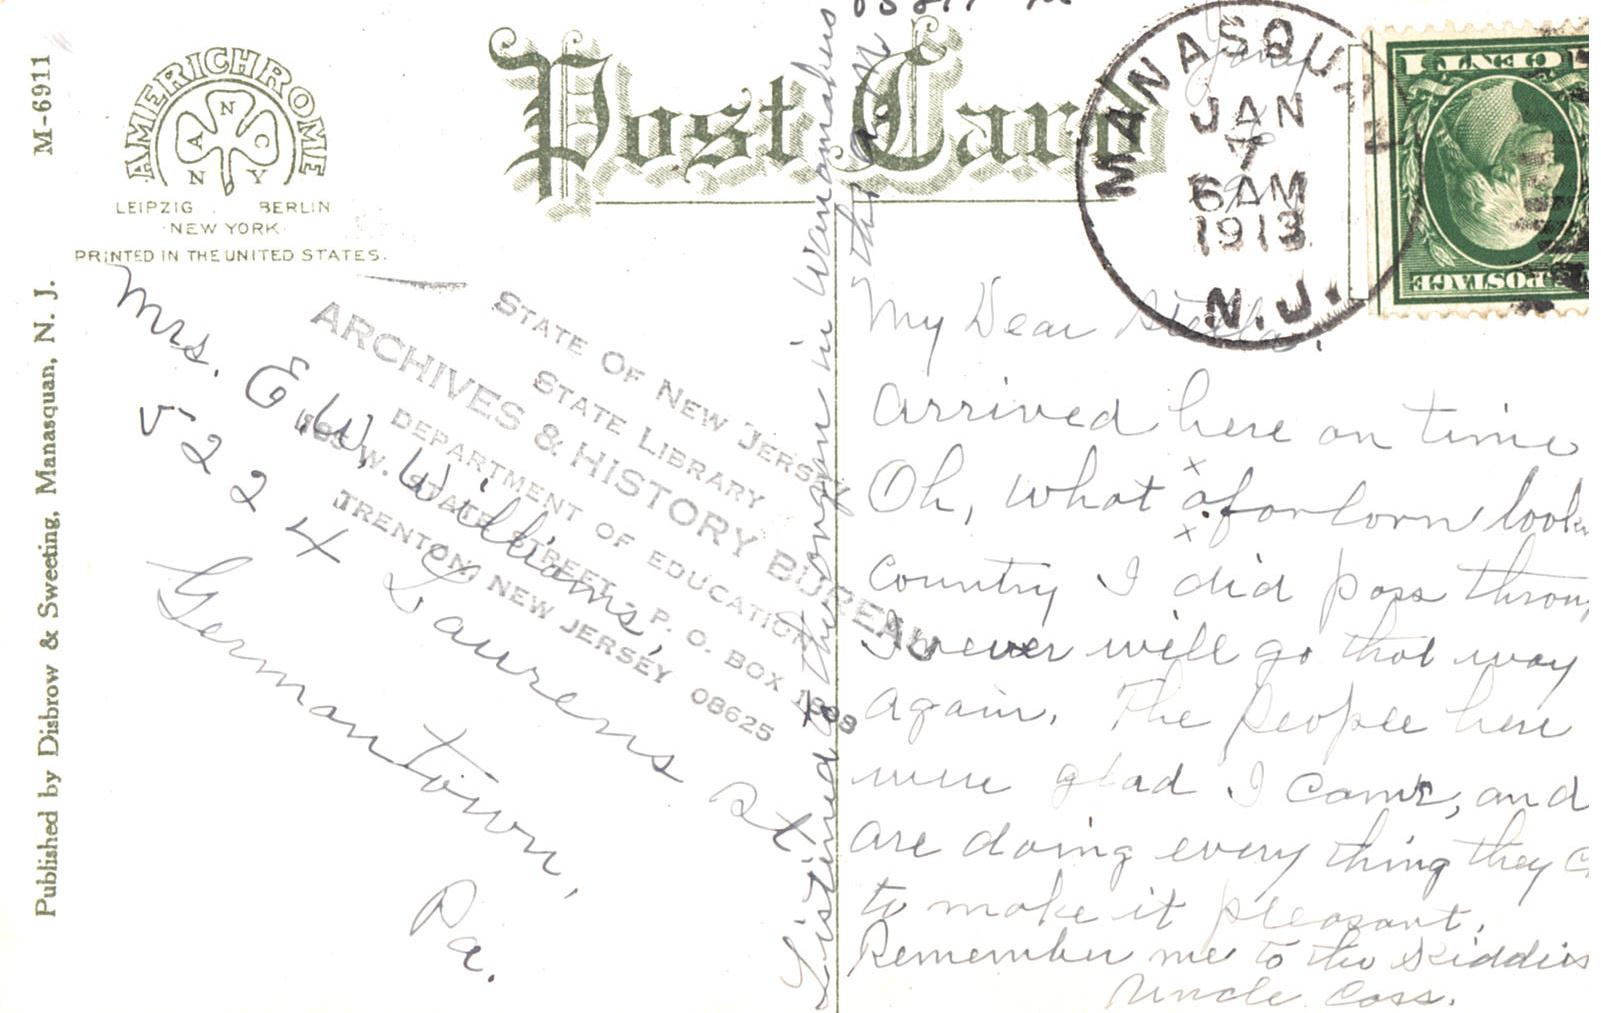 M-6911
Published by Disbrow & Sweeting, Manasquan, N. J.
AMERICHROME
A N C
N Y
LEIPZIG BERLIN
NEW YORK
PRINTED IN THE UNITED STATES.
Post Card
MANASQUAN
JAN
7
6 AM
1913
N.J.
1 CENT 1
POSTAGE
STATE OF NEW JERSEY
STATE LIBRARY
ARCHIVES & HISTORY BUREAU
DEPARTMENT OF EDUCATION
185 W. STATE STREET, P. O. BOX 1898
TRENTON, NEW JERSEY 08625
Mrs. E. W. Williams,
5224 Laurens St.
Germantown,
Pa.
My Dear Stella,
arrived here on time
Oh, what a forlorn look
country I did pass throu
I never will go that way
again. The people here
were glad I came, and
are doing every thing they c
to make it pleasant.
Remember me to the Kiddies
Uncle Coss.
Listened to the organ in Wanamakers
this a. m